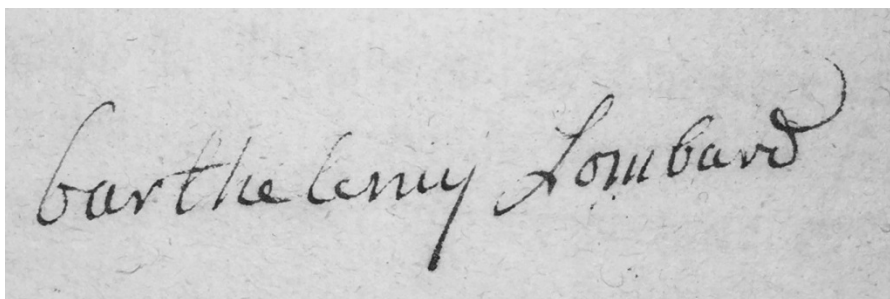 barthelemy Lombard